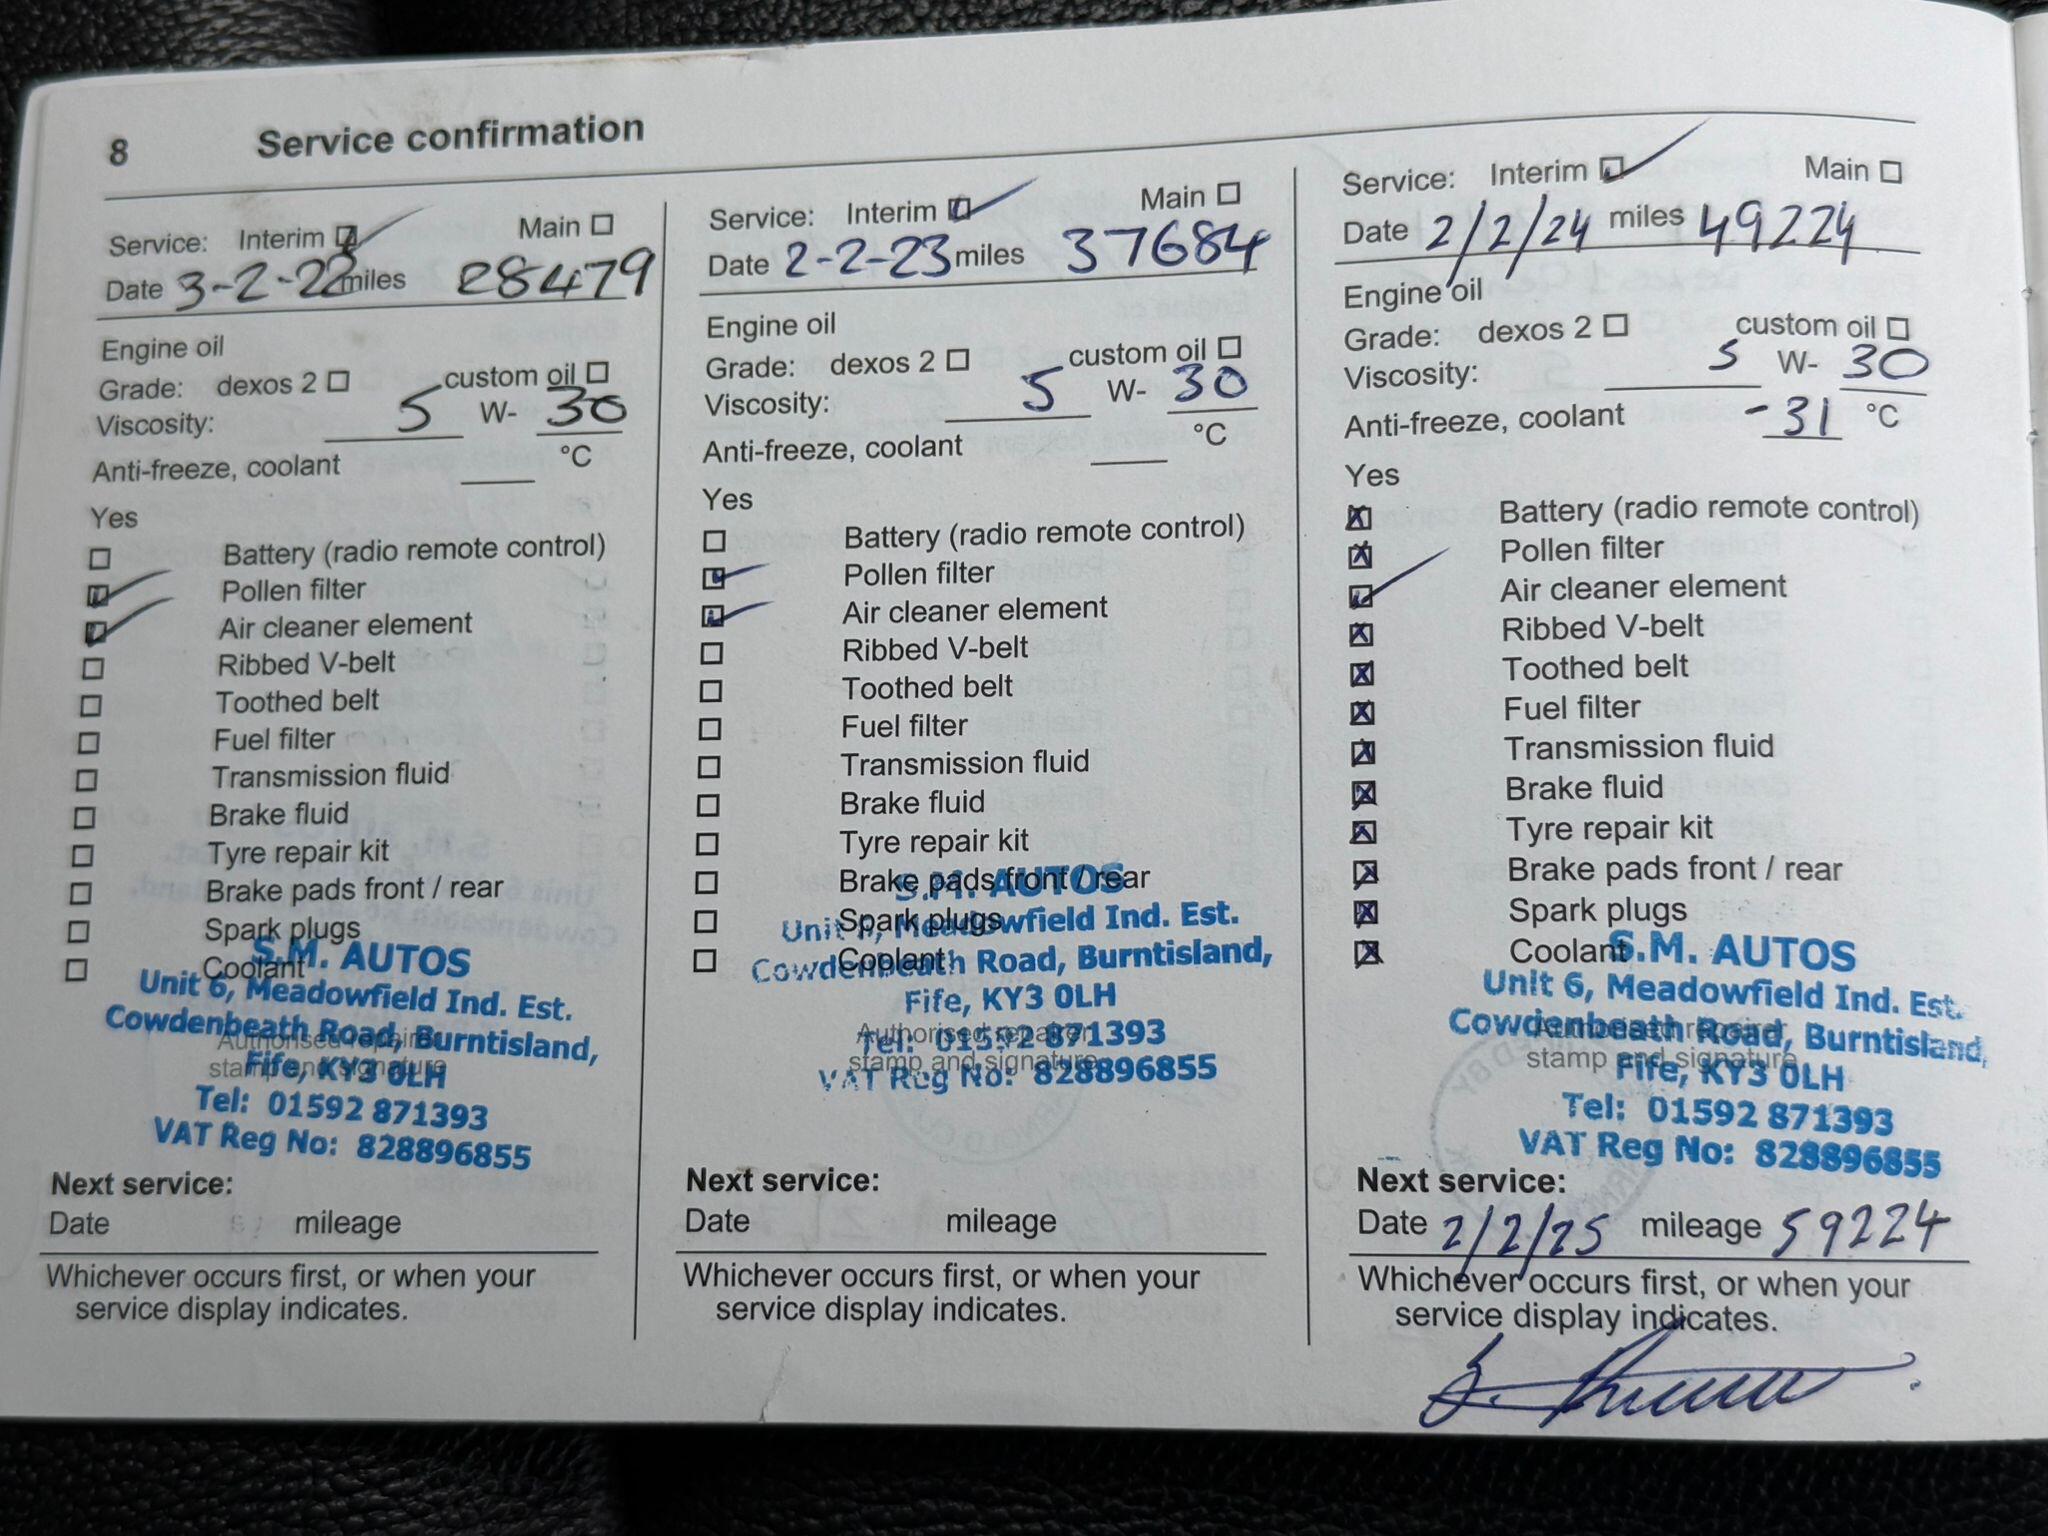 8 Service confirmation
Service: Interim ✓ Main
Date 3-2-22 miles 28479
Engine oil
Grade: dexos 2 custom oil
Viscosity: 5 W- 30
Anti-freeze, coolant °C
Yes
Battery (radio remote control)
✓ Pollen filter
✓ Air cleaner element
Ribbed V-belt
Toothed belt
Fuel filter
Transmission fluid
Brake fluid
Tyre repair kit
Brake pads front / rear
Spark plugs
Coolant
Authorised repairer
stamp and signature
S.M. AUTOS
Unit 6, Meadowfield Ind. Est.
Cowdenbeath Road, Burntisland,
Fife, KY3 0LH
Tel: 01592 871393
VAT Reg No: 828896855
Next service:
Date mileage
Whichever occurs first, or when your
service display indicates.
Service: Interim ✓ Main
Date 2-2-23 miles 37684
Engine oil
Grade: dexos 2 custom oil
Viscosity: 5 W- 30
Anti-freeze, coolant °C
Yes
Battery (radio remote control)
✓ Pollen filter
✓ Air cleaner element
Ribbed V-belt
Toothed belt
Fuel filter
Transmission fluid
Brake fluid
Tyre repair kit
Brake pads front / rear
Spark plugs
Coolant
Authorised repairer
stamp and signature
S.M. AUTOS
Unit 6, Meadowfield Ind. Est.
Cowdenbeath Road, Burntisland,
Fife, KY3 0LH
Tel: 01592 871393
VAT Reg No: 828896855
Next service:
Date mileage
Whichever occurs first, or when your
service display indicates.
Service: Interim ✓ Main
Date 2/2/24 miles 49224
Engine oil
Grade: dexos 2 custom oil
Viscosity: 5 W- 30
Anti-freeze, coolant -31 °C
Yes
X Battery (radio remote control)
X Pollen filter
✓ Air cleaner element
X Ribbed V-belt
X Toothed belt
X Fuel filter
X Transmission fluid
X Brake fluid
X Tyre repair kit
X Brake pads front / rear
X Spark plugs
X Coolant
Authorised repairer
stamp and signature
S.M. AUTOS
Unit 6, Meadowfield Ind. Est.
Cowdenbeath Road, Burntisland,
Fife, KY3 0LH
Tel: 01592 871393
VAT Reg No: 828896855
Next service:
Date 2/2/25 mileage 59224
Whichever occurs first, or when your
service display indicates.